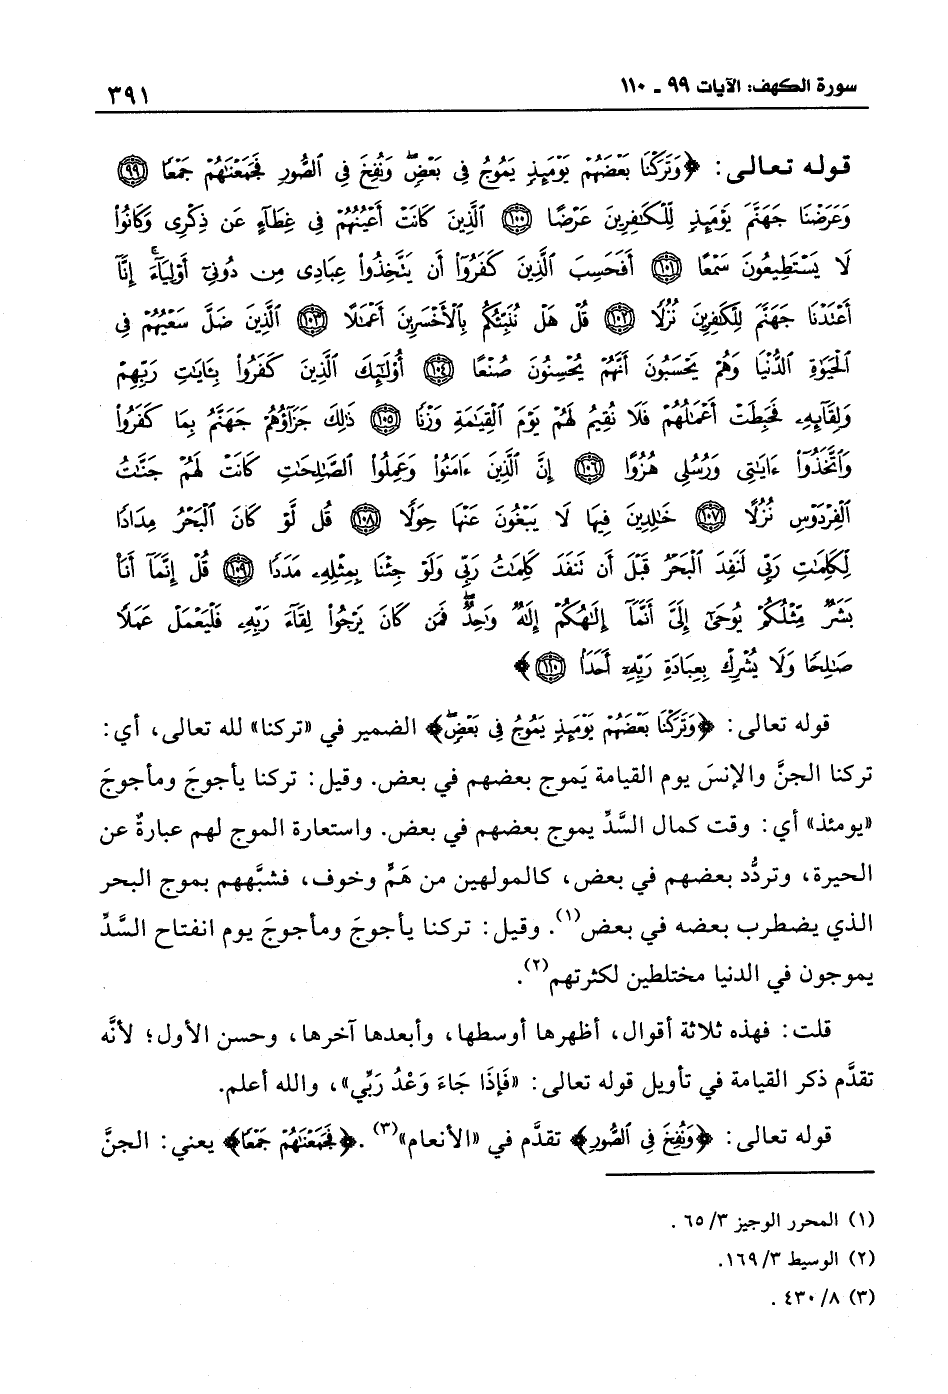 سورة الكهف: الآيات ٩٩ ـ ١١٠
٣٩١
قوله تعالى: ﴿وَتَرَكْنَا بَعْضَهُمْ يَوْمَئِذٍ يَمُوجُ فِي بَعْضٍۖ وَنُفِخَ فِي الصُّورِ فَجَمَعْنَاهُمْ جَمْعًا ٩٩
وَعَرَضْنَا جَهَنَّمَ يَوْمَئِذٍ لِّلْكَافِرِينَ عَرْضًا ١٠٠ الَّذِينَ كَانَتْ أَعْيُنُهُمْ فِي غِطَاءٍ عَن ذِكْرِي وَكَانُوا
لَا يَسْتَطِيعُونَ سَمْعًا ١٠١ أَفَحَسِبَ الَّذِينَ كَفَرُوا أَن يَتَّخِذُوا عِبَادِي مِن دُونِي أَوْلِيَاءَۚ إِنَّا
أَعْتَدْنَا جَهَنَّمَ لِلْكَافِرِينَ نُزُلًا ١٠٢ قُلْ هَلْ نُنَبِّئُكُم بِالْأَخْسَرِينَ أَعْمَالًا ١٠٣ الَّذِينَ ضَلَّ سَعْيُهُمْ فِي
الْحَيَوٰةِ الدُّنْيَا وَهُمْ يَحْسَبُونَ أَنَّهُمْ يُحْسِنُونَ صُنْعًا ١٠٤ أُولَٰئِكَ الَّذِينَ كَفَرُوا بِـَٔايَاتِ رَبِّهِمْ
وَلِقَائِهِۦ فَحَبِطَتْ أَعْمَالُهُمْ فَلَا نُقِيمُ لَهُمْ يَوْمَ الْقِيَامَةِ وَزْنًا ١٠٥ ذَٰلِكَ جَزَاؤُهُمْ جَهَنَّمُ بِمَا كَفَرُوا
وَاتَّخَذُوا ءَايَاتِي وَرُسُلِي هُزُوًا ١٠٦ إِنَّ الَّذِينَ ءَامَنُوا وَعَمِلُوا الصَّالِحَاتِ كَانَتْ لَهُمْ جَنَّاتُ
الْفِرْدَوْسِ نُزُلًا ١٠٧ خَالِدِينَ فِيهَا لَا يَبْغُونَ عَنْهَا حِوَلًا ١٠٨ قُل لَّوْ كَانَ الْبَحْرُ مِدَادًا
لِّكَلِمَاتِ رَبِّي لَنَفِدَ الْبَحْرُ قَبْلَ أَن تَنفَدَ كَلِمَاتُ رَبِّي وَلَوْ جِئْنَا بِمِثْلِهِۦ مَدَدًا ١٠٩ قُلْ إِنَّمَا أَنَا
بَشَرٌ مِّثْلُكُمْ يُوحَىٰ إِلَيَّ أَنَّمَا إِلَٰهُكُمْ إِلَٰهٌ وَاحِدٌۖ فَمَن كَانَ يَرْجُوا لِقَاءَ رَبِّهِۦ فَلْيَعْمَلْ عَمَلًا
صَالِحًا وَلَا يُشْرِكْ بِعِبَادَةِ رَبِّهِۦ أَحَدًا ١١٠﴾
قوله تعالى: ﴿وَتَرَكْنَا بَعْضَهُمْ يَوْمَئِذٍ يَمُوجُ فِي بَعْضٍۖ﴾ الضمير في «تركنا» لله تعالى، أي:
تركنا الجنَّ والإنسَ يوم القيامة يَموج بعضهم في بعض. وقيل: تركنا يأجوجَ ومأجوجَ
«يومئذ» أي: وقت كمال السَّدِّ يموج بعضهم في بعض. واستعارة الموج لهم عبارةٌ عن
الحيرة، وتردُّد بعضهم في بعض، كالمولهين من هَمٍّ وخوف، فشبَّههم بموج البحر
الذي يضطرب بعضه في بعض(١). وقيل: تركنا يأجوجَ ومأجوجَ يوم انفتاح السَّدِّ
يموجون في الدنيا مختلطين لكثرتهم(٢).
قلت: فهذه ثلاثة أقوال، أظهرها أوسطها، وأبعدها آخرها، وحسن الأول؛ لأنَّه
تقدَّم ذكر القيامة في تأويل قوله تعالى: «فَإِذَا جَاءَ وَعْدُ رَبِّي»، والله أعلم.
قوله تعالى: ﴿وَنُفِخَ فِي الصُّورِ﴾ تقدَّم في «الأنعام»(٣). ﴿فَجَمَعْنَاهُمْ جَمْعًا﴾ يعني: الجنَّ
(١) المحرر الوجيز ٣/ ٦٥ .
(٢) الوسيط ٣/ ١٦٩.
(٣) ٨/ ٤٣٠ .